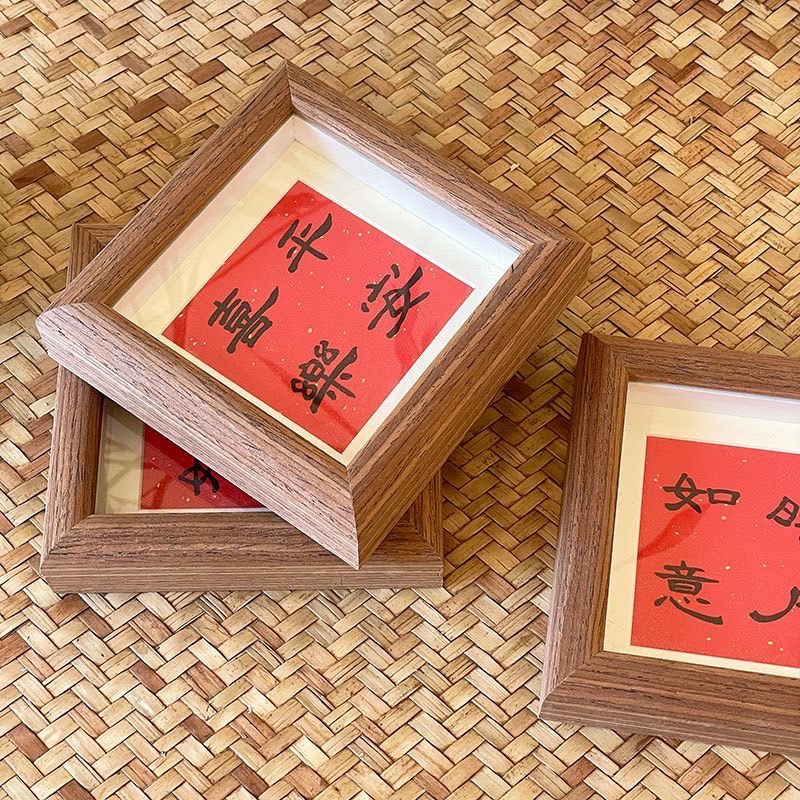 平安
喜樂
如
意